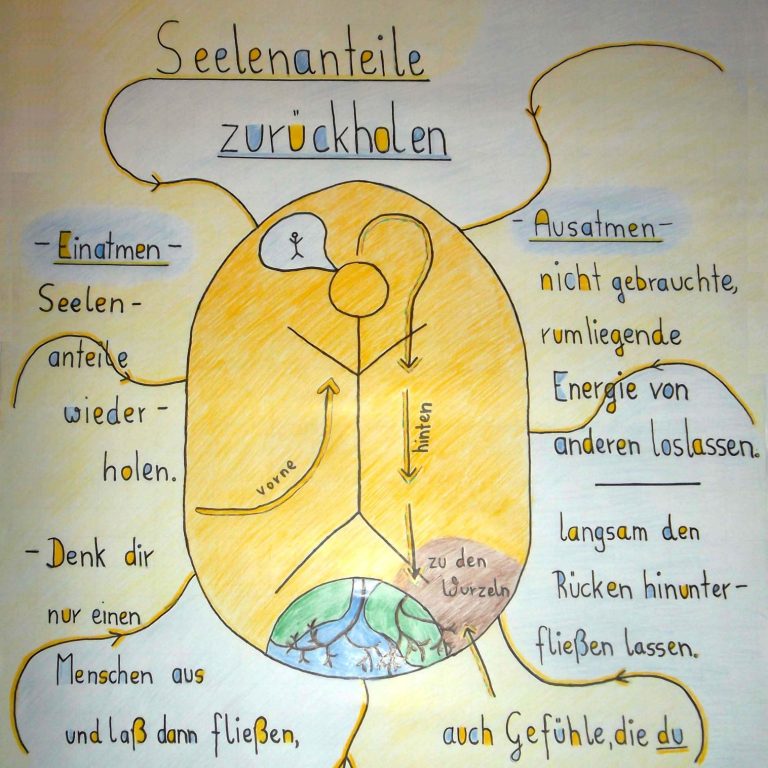 Seelenanteile
zurückholen
- Einatmen -
Seelen-
anteile
wieder-
holen.
- Denk dir
nur einen
Menschen aus
und laß dann fließen,
vorne
hinten
zu den
Wurzeln
- Ausatmen -
nicht gebrauchte,
rumliegende
Energie von
anderen loslassen.
langsam den
Rücken hinunter-
fließen lassen.
auch Gefühle, die du